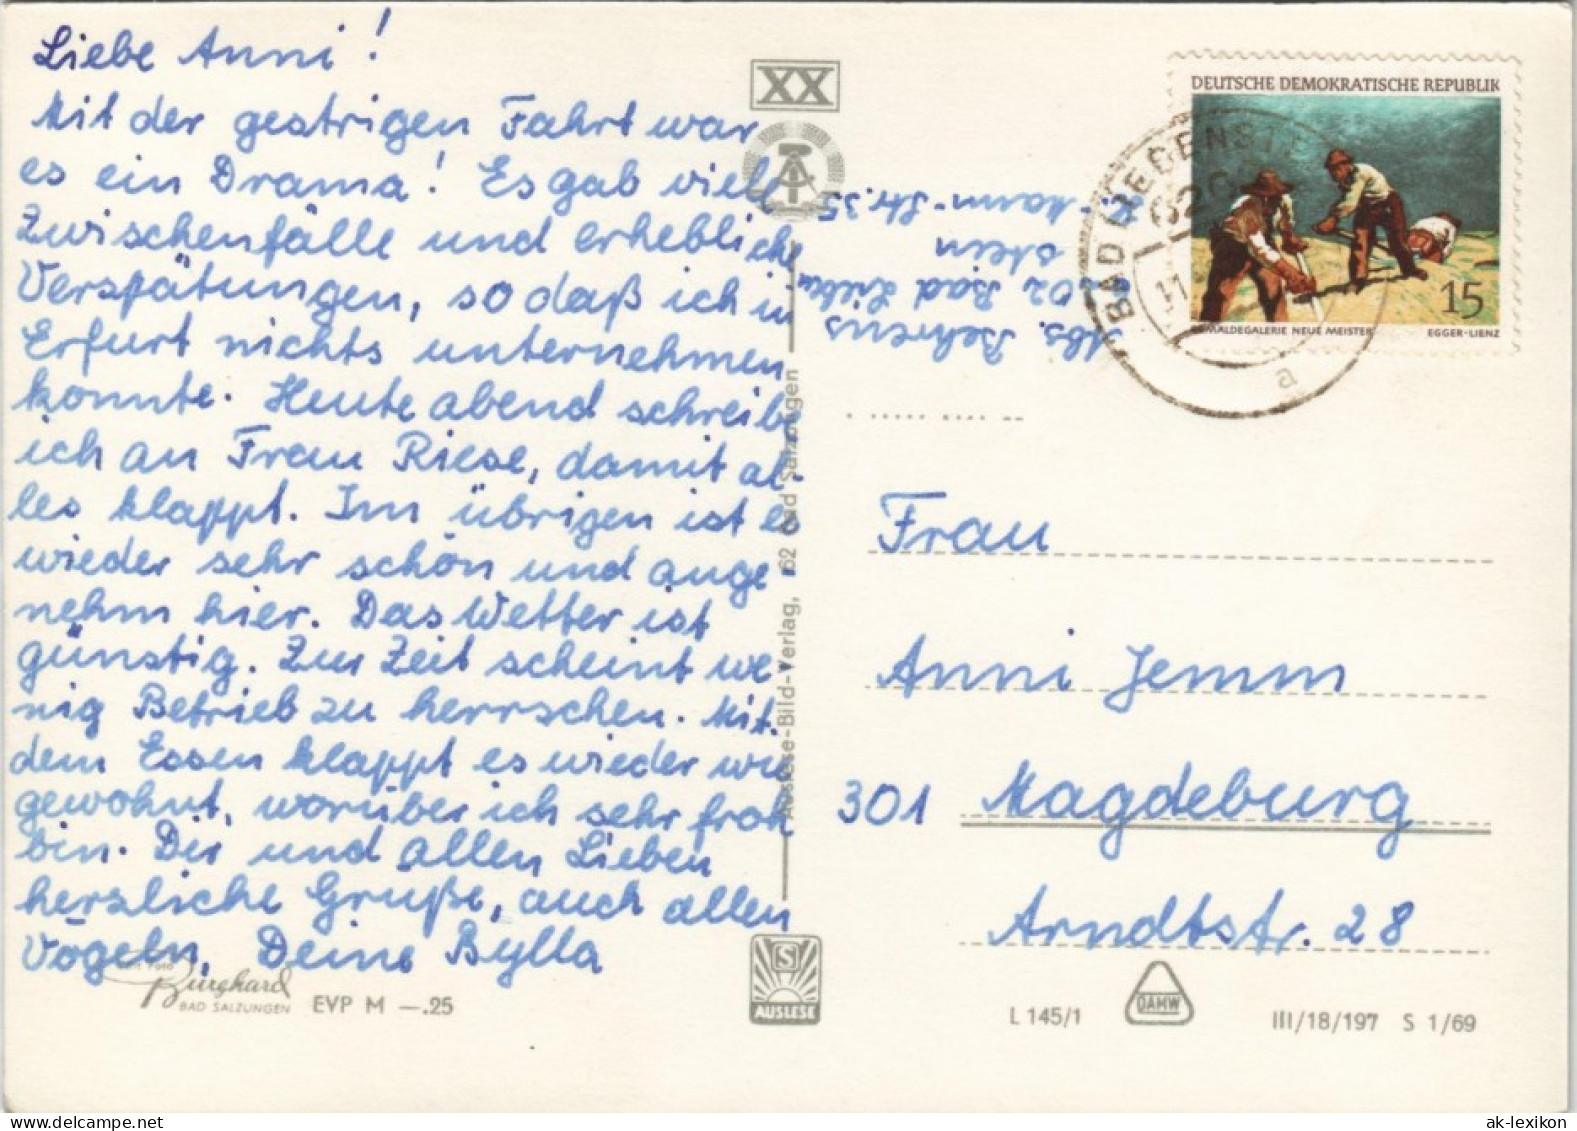 Liebe Anni!
Mit der gestrigen Fahrt war
es ein Drama! Es gab viele
Zwischenfälle und erhebliche
Verspätungen, so daß ich in
Erfurt nichts unternehmen
konnte. Heute abend schreibe
ich an Frau Riese, damit al-
les klappt. Im übrigen ist es
wieder sehr schön und ange-
nehm hier. Das Wetter ist
günstig. Zur Zeit scheint we-
nig Betrieb zu herrschen. Mit
dem Essen klappt es wieder wie
gewohnt, worüber ich sehr froh
bin. Dir und allen Lieben
herzliche Grüße, auch allen
Vögeln, Deine Bylla
Foto
Burghard
BAD SALZUNGEN
EVP M —.25
XX
Auslese-Bild-Verlag, 62 Bad Salzungen
S
AUSLESE
Abs. Behrens
Bad Lieben
stein
Str. 35
DEUTSCHE DEMOKRATISCHE REPUBLIK
15
GEMÄLDEGALERIE NEUE MEISTER
EGGER-LIENZ
BAD LIEBENSTEIN
a
Frau
Anni Jemm
301 Magdeburg
Arndtstr. 28
L 145/1
DAMW
III/18/197 S 1/69
ak-lexikon